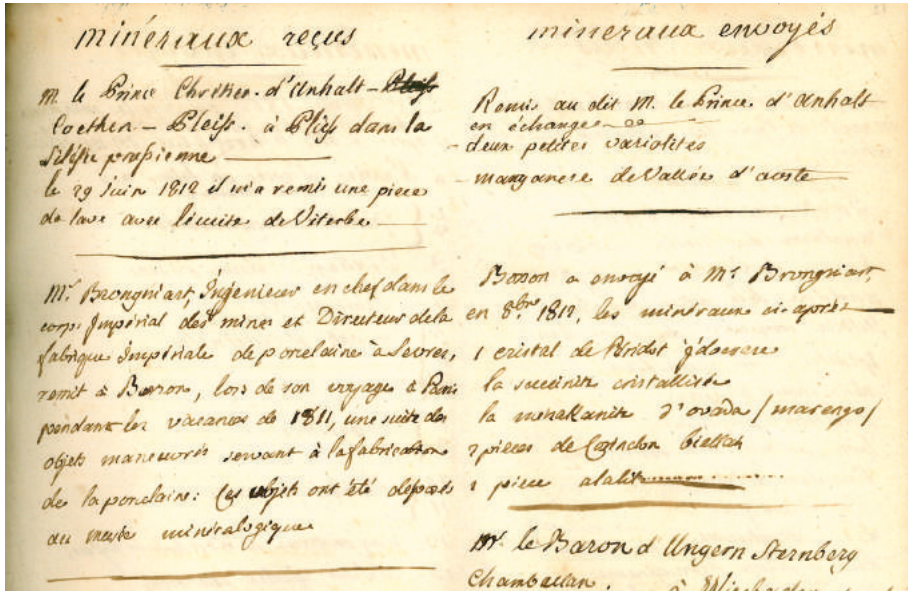 minéraux reçus
M. le Prince Chrétien d'Anhalt-
Coethen - Pleiß. à Pleiß dans la
Silésie prussienne
le 29 Juin 1812 il m'a remis une piece
de lave avec leucite de Viterbe
Mr. Brongniart, Ingenieur en chef dans le
corps Impérial des mines et Directeur de la
fabrique Impériale de porcelaine à Sevres,
remit à Borson, lors de son voyage à Paris
pendant les vacances de 1811, une suite des
objets manoeuvrés servant à la fabrication
de la porcelaine: Ces objets ont été déposés
au musée minéralogique
minéraux envoyés
Remis au dit M. le Prince d'Anhalt
en échange
deux petites variolites
manganese de Vallée d'aoste
Borson a envoyé à Mr. Brongniart,
en 8bre 1812, les minéraux ci-après
1 cristal de Péridot idocrase
la succinite cristallisée
la menakanite d'ovada / marengo /
2 pièces de Corindon biellais
1 piece alalite
Mr. le Baron d'Ungern Sternberg
Chambellan. à